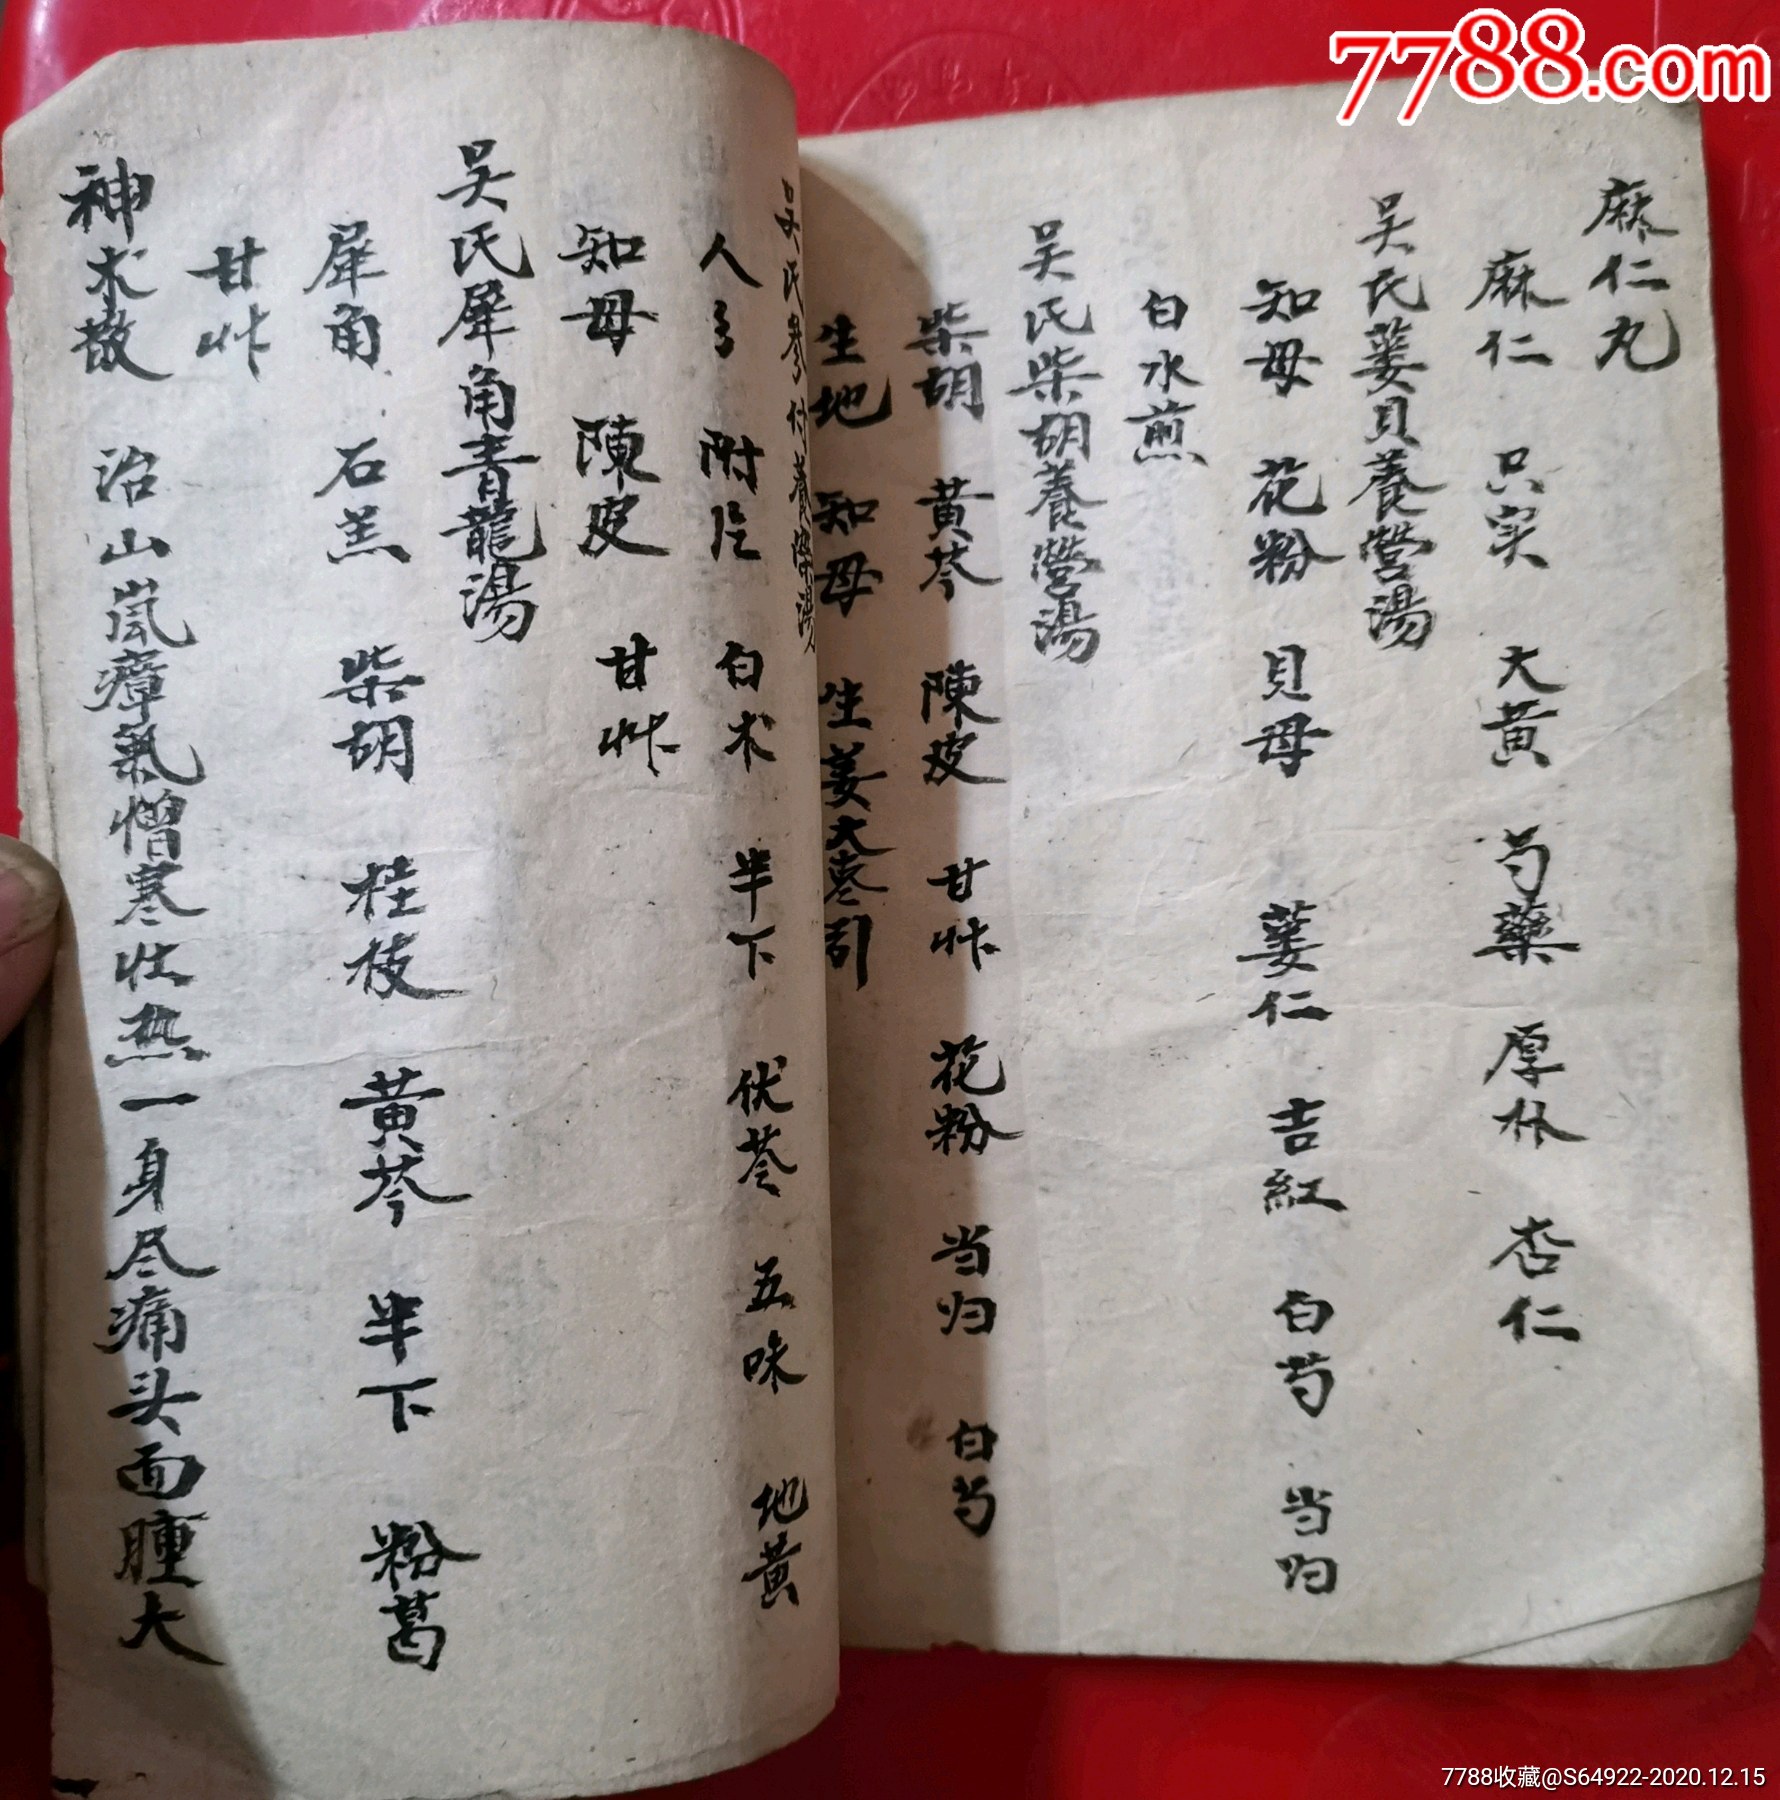 7788.com
麻仁丸
麻仁 只实 大黄 芍藥 厚朴 杏仁
吴氏蒌贝養营湯
知母 花粉 贝母 蒌仁 吉紅 白芍 当归
白水煎
吴氏柴胡養营湯
柴胡 黄芩 陳皮 甘艸 花粉 当归 白芍
生地 知母 生姜大枣引
吴氏參付養榮湯
人 附片 白术 半下 伏苓 五味 地黄
知母 陳皮 甘艸
吴氏犀角青龍湯
犀角 石羔 柴胡 桂枝 黄芩 半下 粉葛
甘艸
神术散 治山嵐瘴氣憎寒壮热一身尽痛头面腫大
7788收藏@S64922-2020.12.15